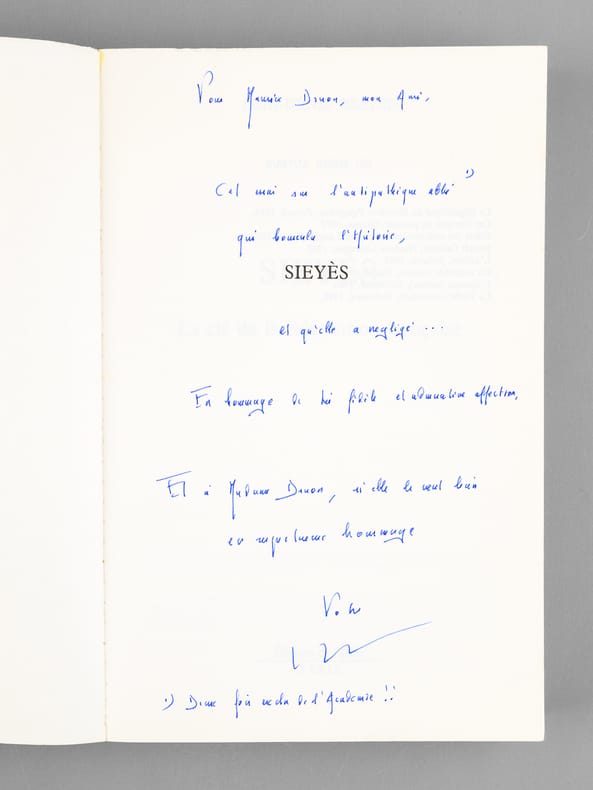 Pour Maurice Druon, mon Ami,
Cet essai sur l'antipathique abbé *)
qui bouscula l'Histoire,
SIEYÈS
et qu'elle a négligé ...
En hommage de très fidèle et admirative affection,
Et à Madame Druon, si elle le veut bien
en respectueux hommage
Votre
*) Deux fois exclu de l'Académie !!